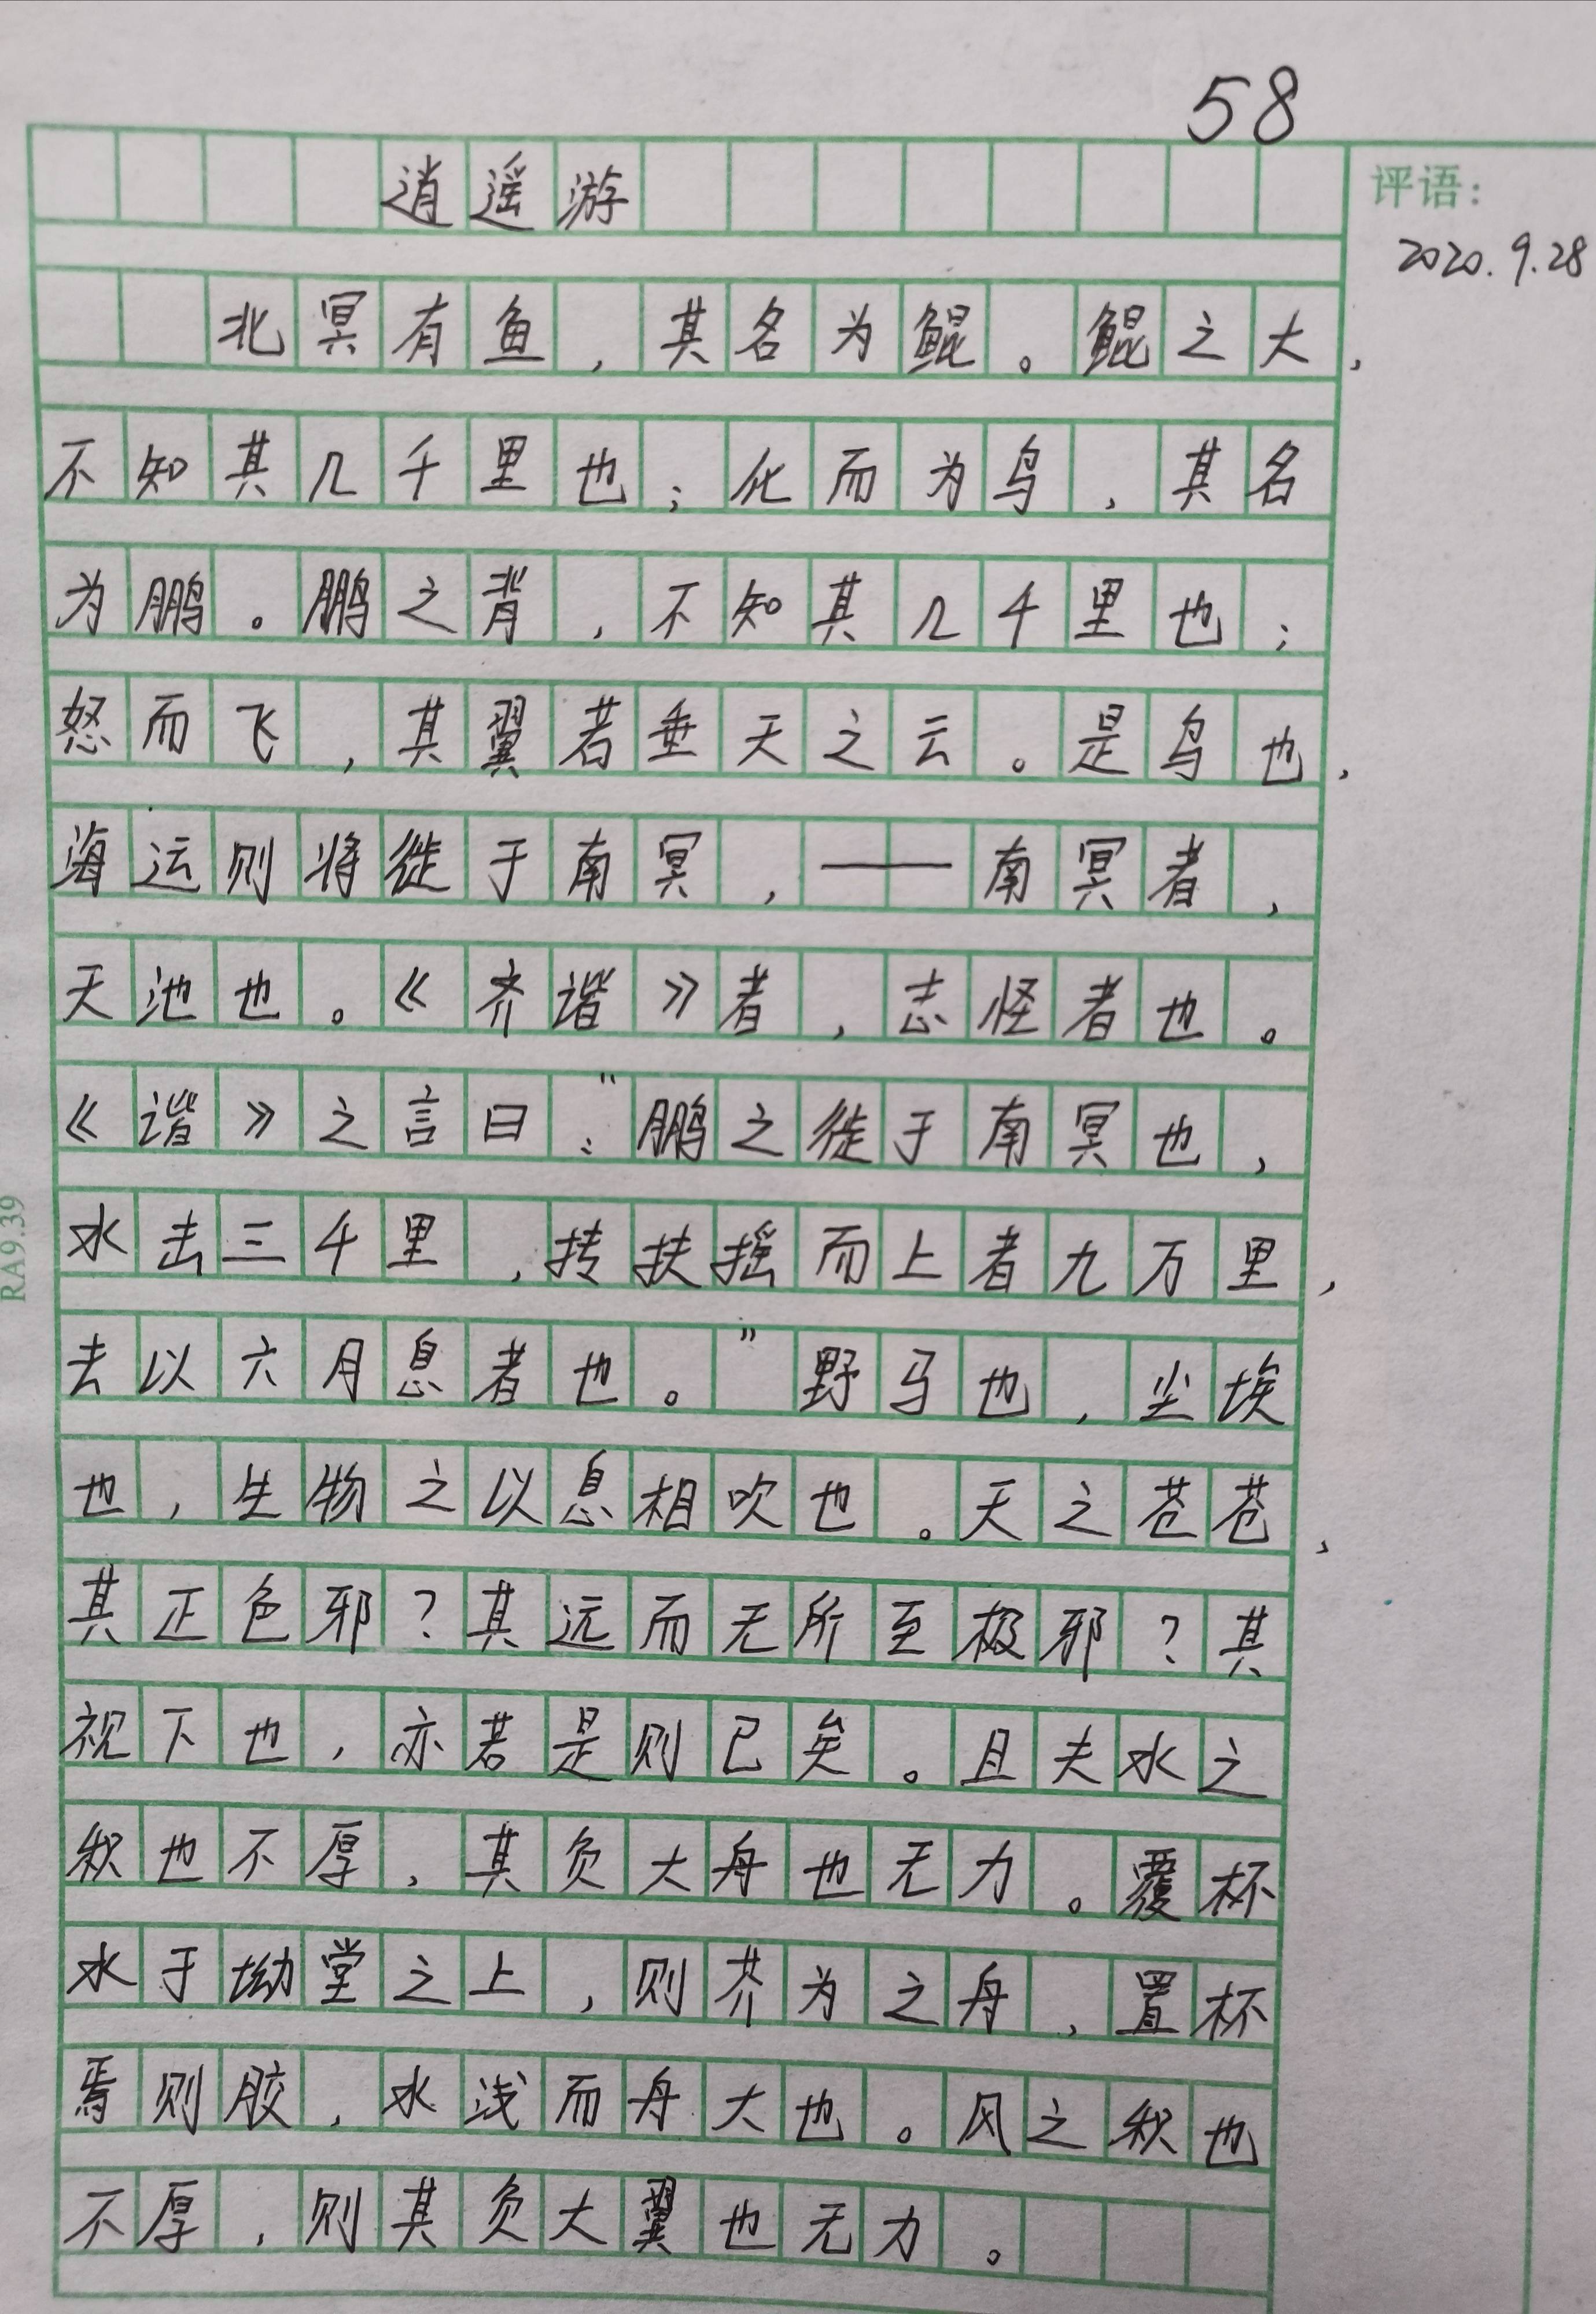 58
逍遥游
评语：
2020.9.28
北冥有鱼，其名为鲲。鲲之大，
不知其几千里也；化而为鸟，其名
为鹏。鹏之背，不知其几千里也；
怒而飞，其翼若垂天之云。是鸟也，
海运则将徙于南冥，——南冥者，
天池也。《齐谐》者，志怪者也。
《谐》之言曰：“鹏之徙于南冥也，
水击三千里，抟扶摇而上者九万里，
去以六月息者也。”野马也，尘埃
也，生物之以息相吹也。天之苍苍，
其正色邪？其远而无所至极邪？其
视下也，亦若是则已矣。且夫水之
积也不厚，其负大舟也无力。覆杯
水于坳堂之上，则芥为之舟，置杯
焉则胶，水浅而舟大也。风之积也
不厚，则其负大翼也无力。
RA9.39